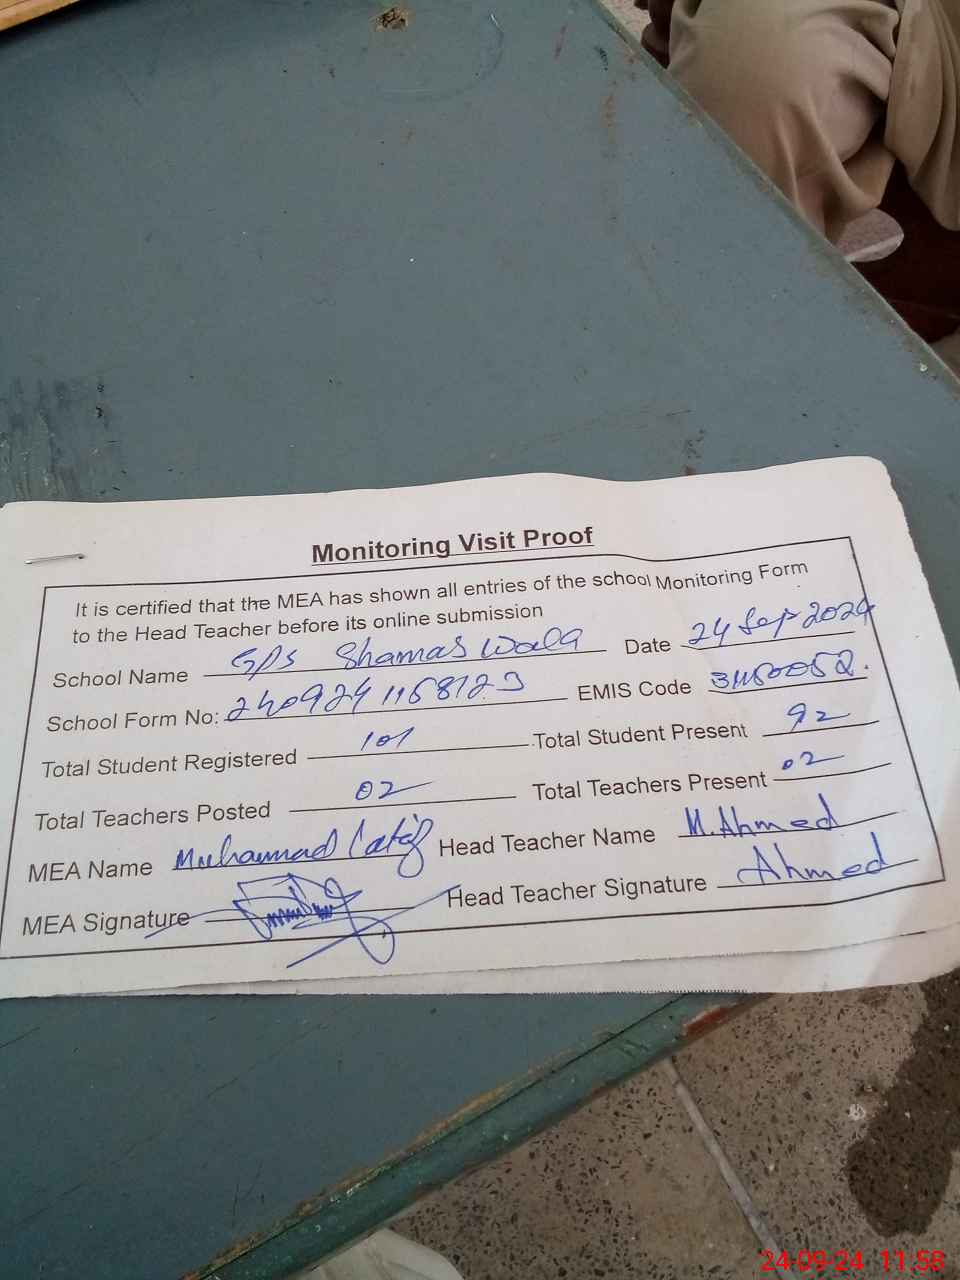 Monitoring Visit Proof
It is certified that the MEA has shown all entries of the school Monitoring Form
to the Head Teacher before its online submission
School Name GPS Shamas Wala Date 24 Sep 2024
School Form No: 2409241158123 EMIS Code 31150052.
Total Student Registered 101 Total Student Present 92
Total Teachers Posted 02 Total Teachers Present 02
MEA Name Muhammad Latif Head Teacher Name M.Ahmed
MEA Signature Head Teacher Signature Ahmed
24-09-24 11:58